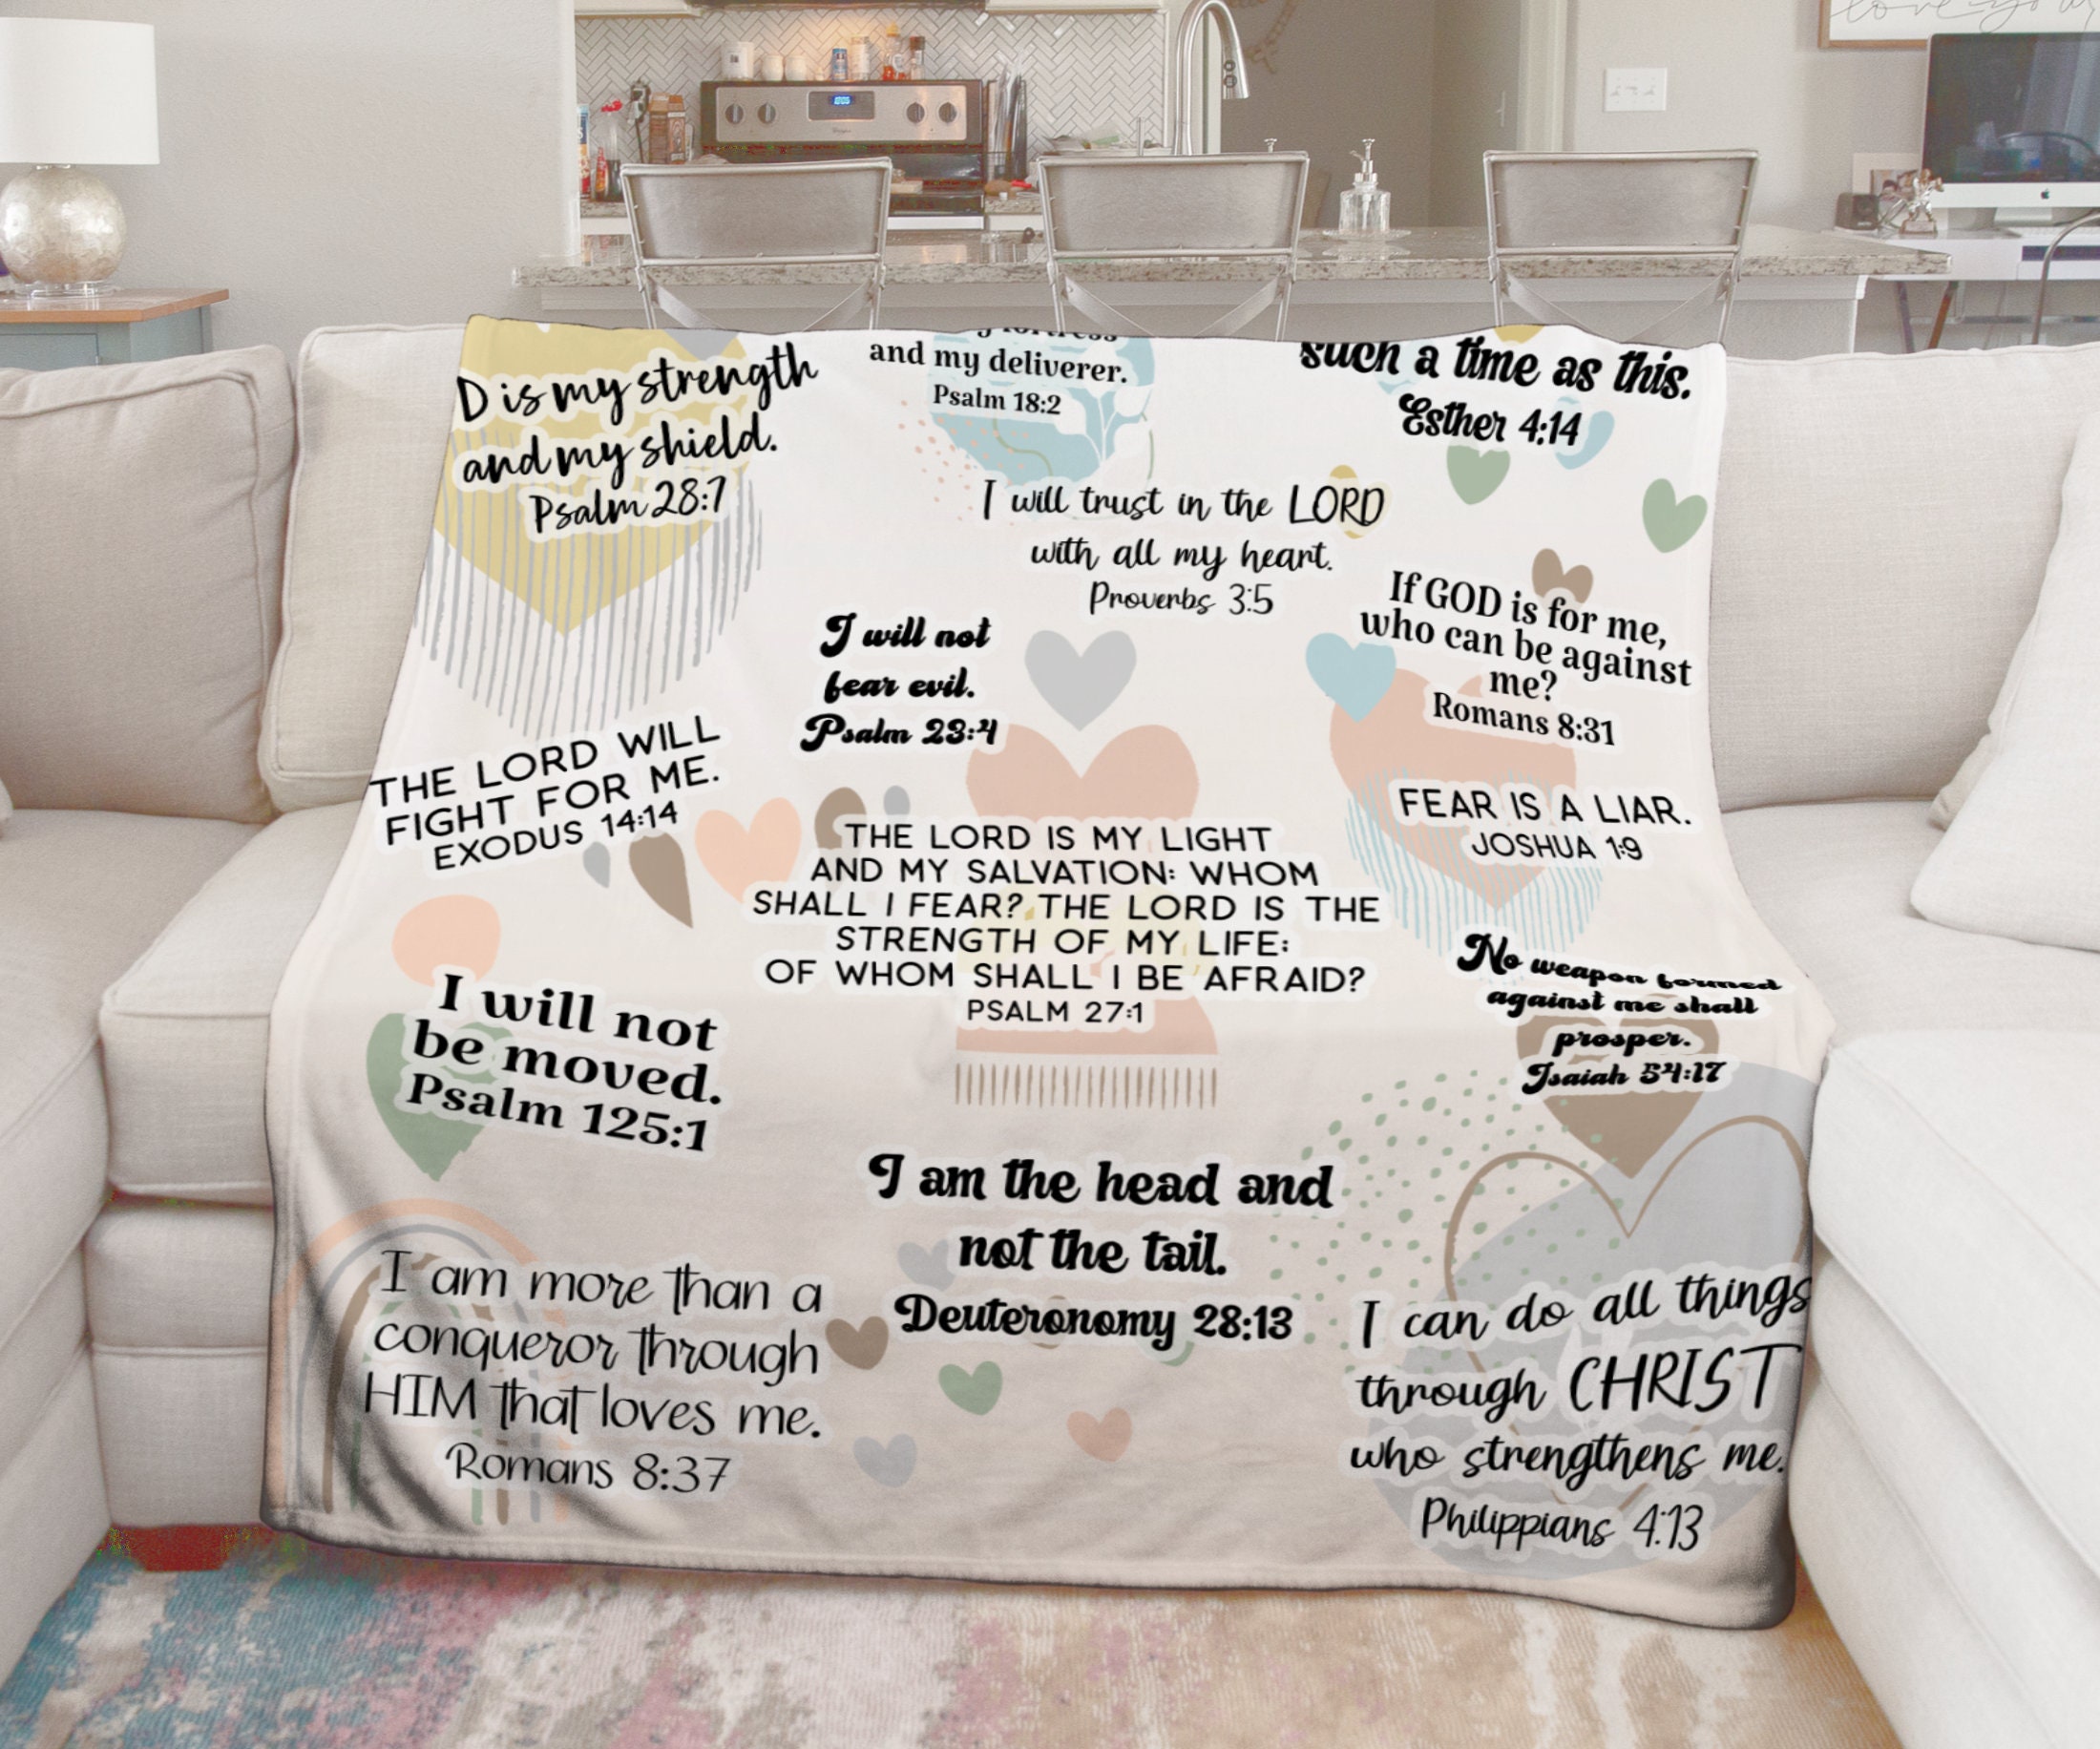 love you
D is my strength
and my shield.
Psalm 28:7
fortress
and my deliverer.
Psalm 18:2
such a time as this.
Esther 4:14
I will trust in the LORD
with all my heart.
Proverbs 3:5
If GOD is for me,
who can be against
me?
Romans 8:31
I will not
fear evil.
Psalm 23:4
THE LORD WILL
FIGHT FOR ME.
EXODUS 14:14
THE LORD IS MY LIGHT
AND MY SALVATION: WHOM
SHALL I FEAR? THE LORD IS THE
STRENGTH OF MY LIFE:
OF WHOM SHALL I BE AFRAID?
PSALM 27:1
FEAR IS A LIAR.
JOSHUA 1:9
No weapon formed
against me shall
prosper.
Isaiah 54:17
I will not
be moved.
Psalm 125:1
I am the head and
not the tail.
Deuteronomy 28:13
I am more than a
conqueror through
HIM that loves me.
Romans 8:37
I can do all things
through CHRIST
who strengthens me.
Philippians 4:13